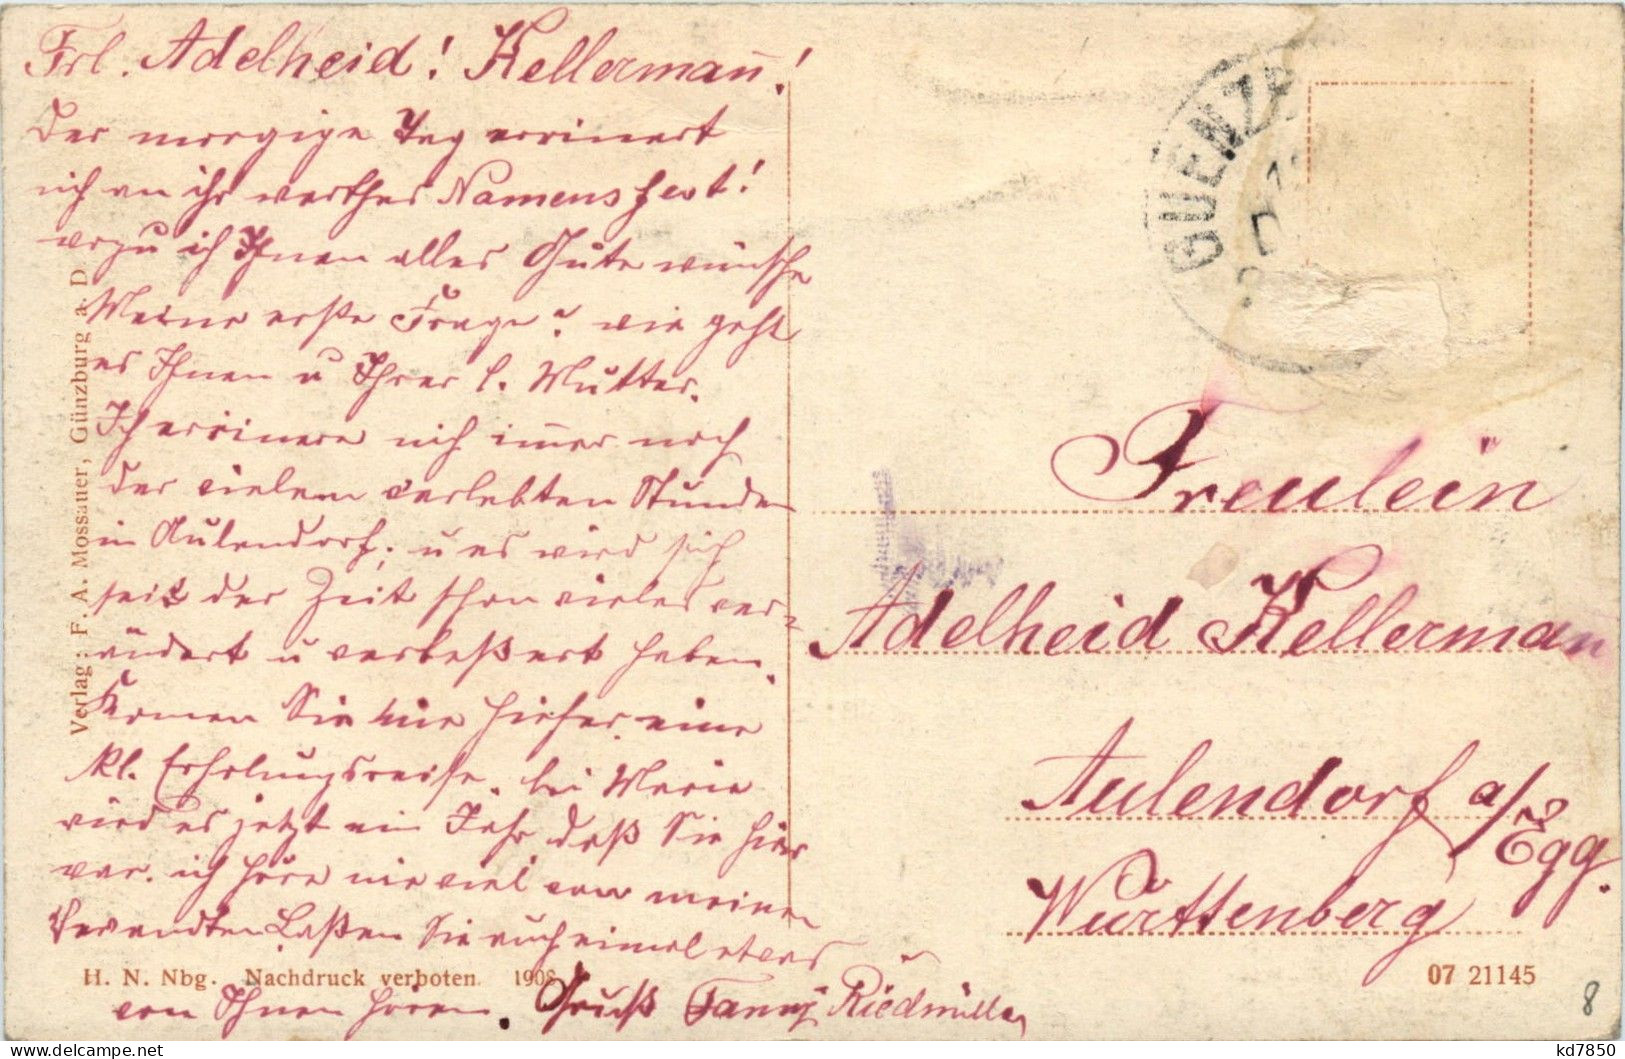 Frl. Adelheid! Kellermañ!
Der morgige Tag errinert
mich an ihr werthes Namensfest!
wozu ich Ihnen alles Gute wünsche
Meine erste Frage? wie geht
es Ihnen u Ihrer l. Mutter.
Ich errinere mich im̄er noch
der vielem verlebten Stunden
in Aulendorf, u es wird sich
seit der Zeit schon vieles ver-
ändert u verbeßert haben.
Komen Sie hieher eine
kl. Erholungsreise. bei Marie
wird es jetzt ein Jahr daß Sie hier
war. ich höre nie viel von meinen
Verwandten Laßen Sie auch einmal etwas
von Ihnen hören. Gruß Fanny Riedmüller
Verlag: F. A. Mossauer, Günzburg a. D.
H. N. Nbg. Nachdruck verboten. 1908
GUENZB
Freulein
Adelheid Kellerman
Aulendorf a/
Egg.
Württenberg
07 21145
8
kd7850